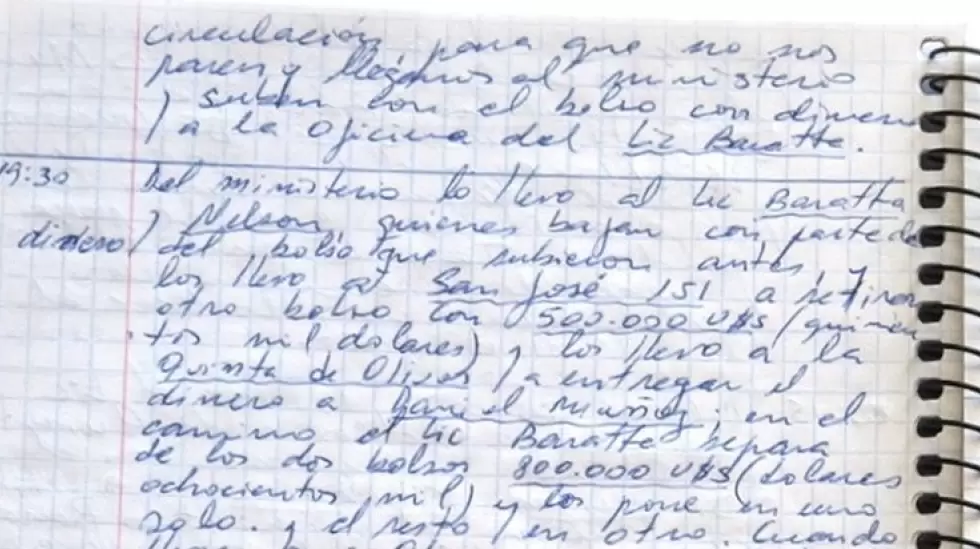 circulación, para que no nos
paren y llegamos al ministerio
y suben con el bolso con dinero
a la oficina del Lic Baratta.
19:30 Del ministerio lo llevo al Lic Baratta
y Nelson, quienes bajan con parte del
dinero del bolso que subieron antes, y
los llevo a San José 151 a retirar
otro bolso con 500.000 U$S (quinien
tos mil dolares) y los llevo a la
Quinta de Olivos, a entregar el
dinero a Daniel Muñoz, en el
camino el Lic Baratta separa
de los dos bolsos 800.000 U$S (dolares
ochocientos mil) y los pone en uno
solo. y el resto en otro. Cuando